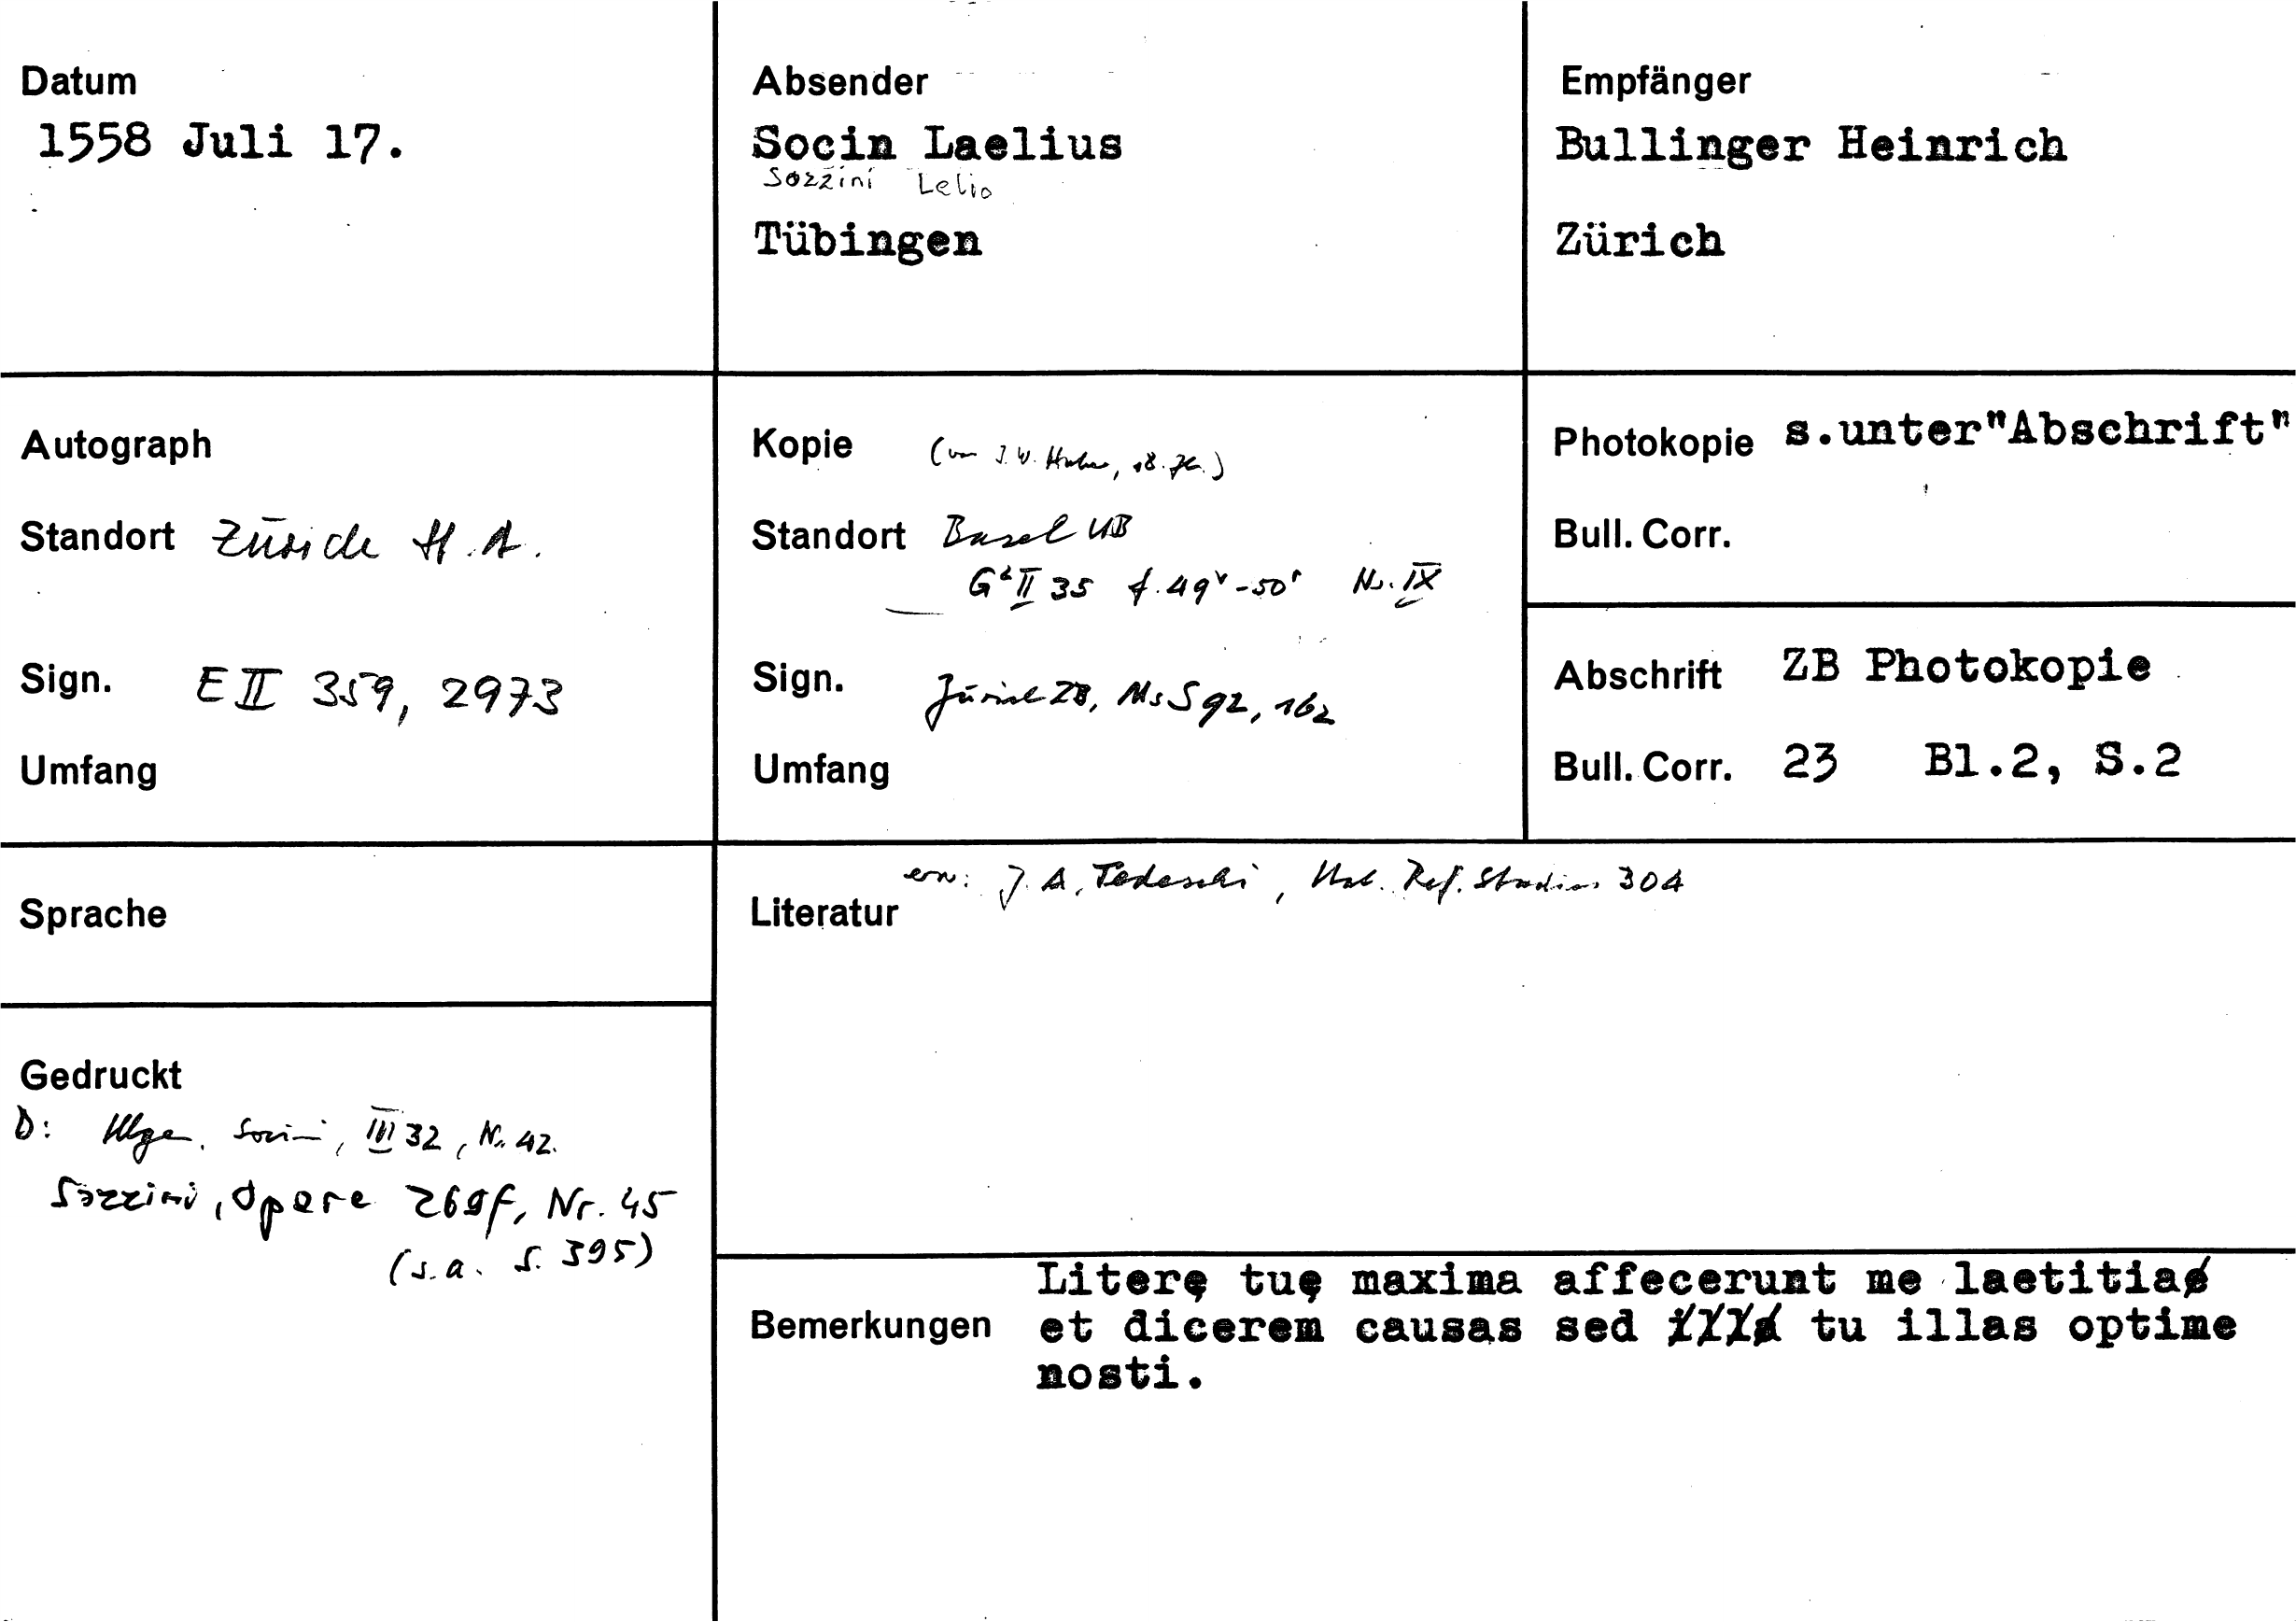 Datum
1558 Juli 17.
Absender
Socin Laelius
Sozzini Lelio
Tübingen
Empfänger
Bullinger Heinrich
Zürich
Autograph
Standort Zürich H.A.
Sign. E II 359, 2973
Umfang
Kopie (von J.W. Huber, 18. Jh.)
Standort Basel UB
G² II 35 f. 49v-50r Nr. IX
Sign. Zürich ZB, Ms S 92, 162
Umfang
Photokopie s.unter"Abschrift"
Bull. Corr.
Abschrift ZB Photokopie
Bull. Corr. 23 Bl.2, S.2
Sprache
Gedruckt
D: Illgen. Socini, III 32, Nr. 42.
Sozzini, Opere 269f, Nr. 45
(s.a. S. 395)
erw: J. A. Tedeschi, Ital. Ref. Studies 304
Literatur
Literę tuę maxima affecerunt me laetitia
Bemerkungen et dicerem causas sed tu illas optime
nosti.